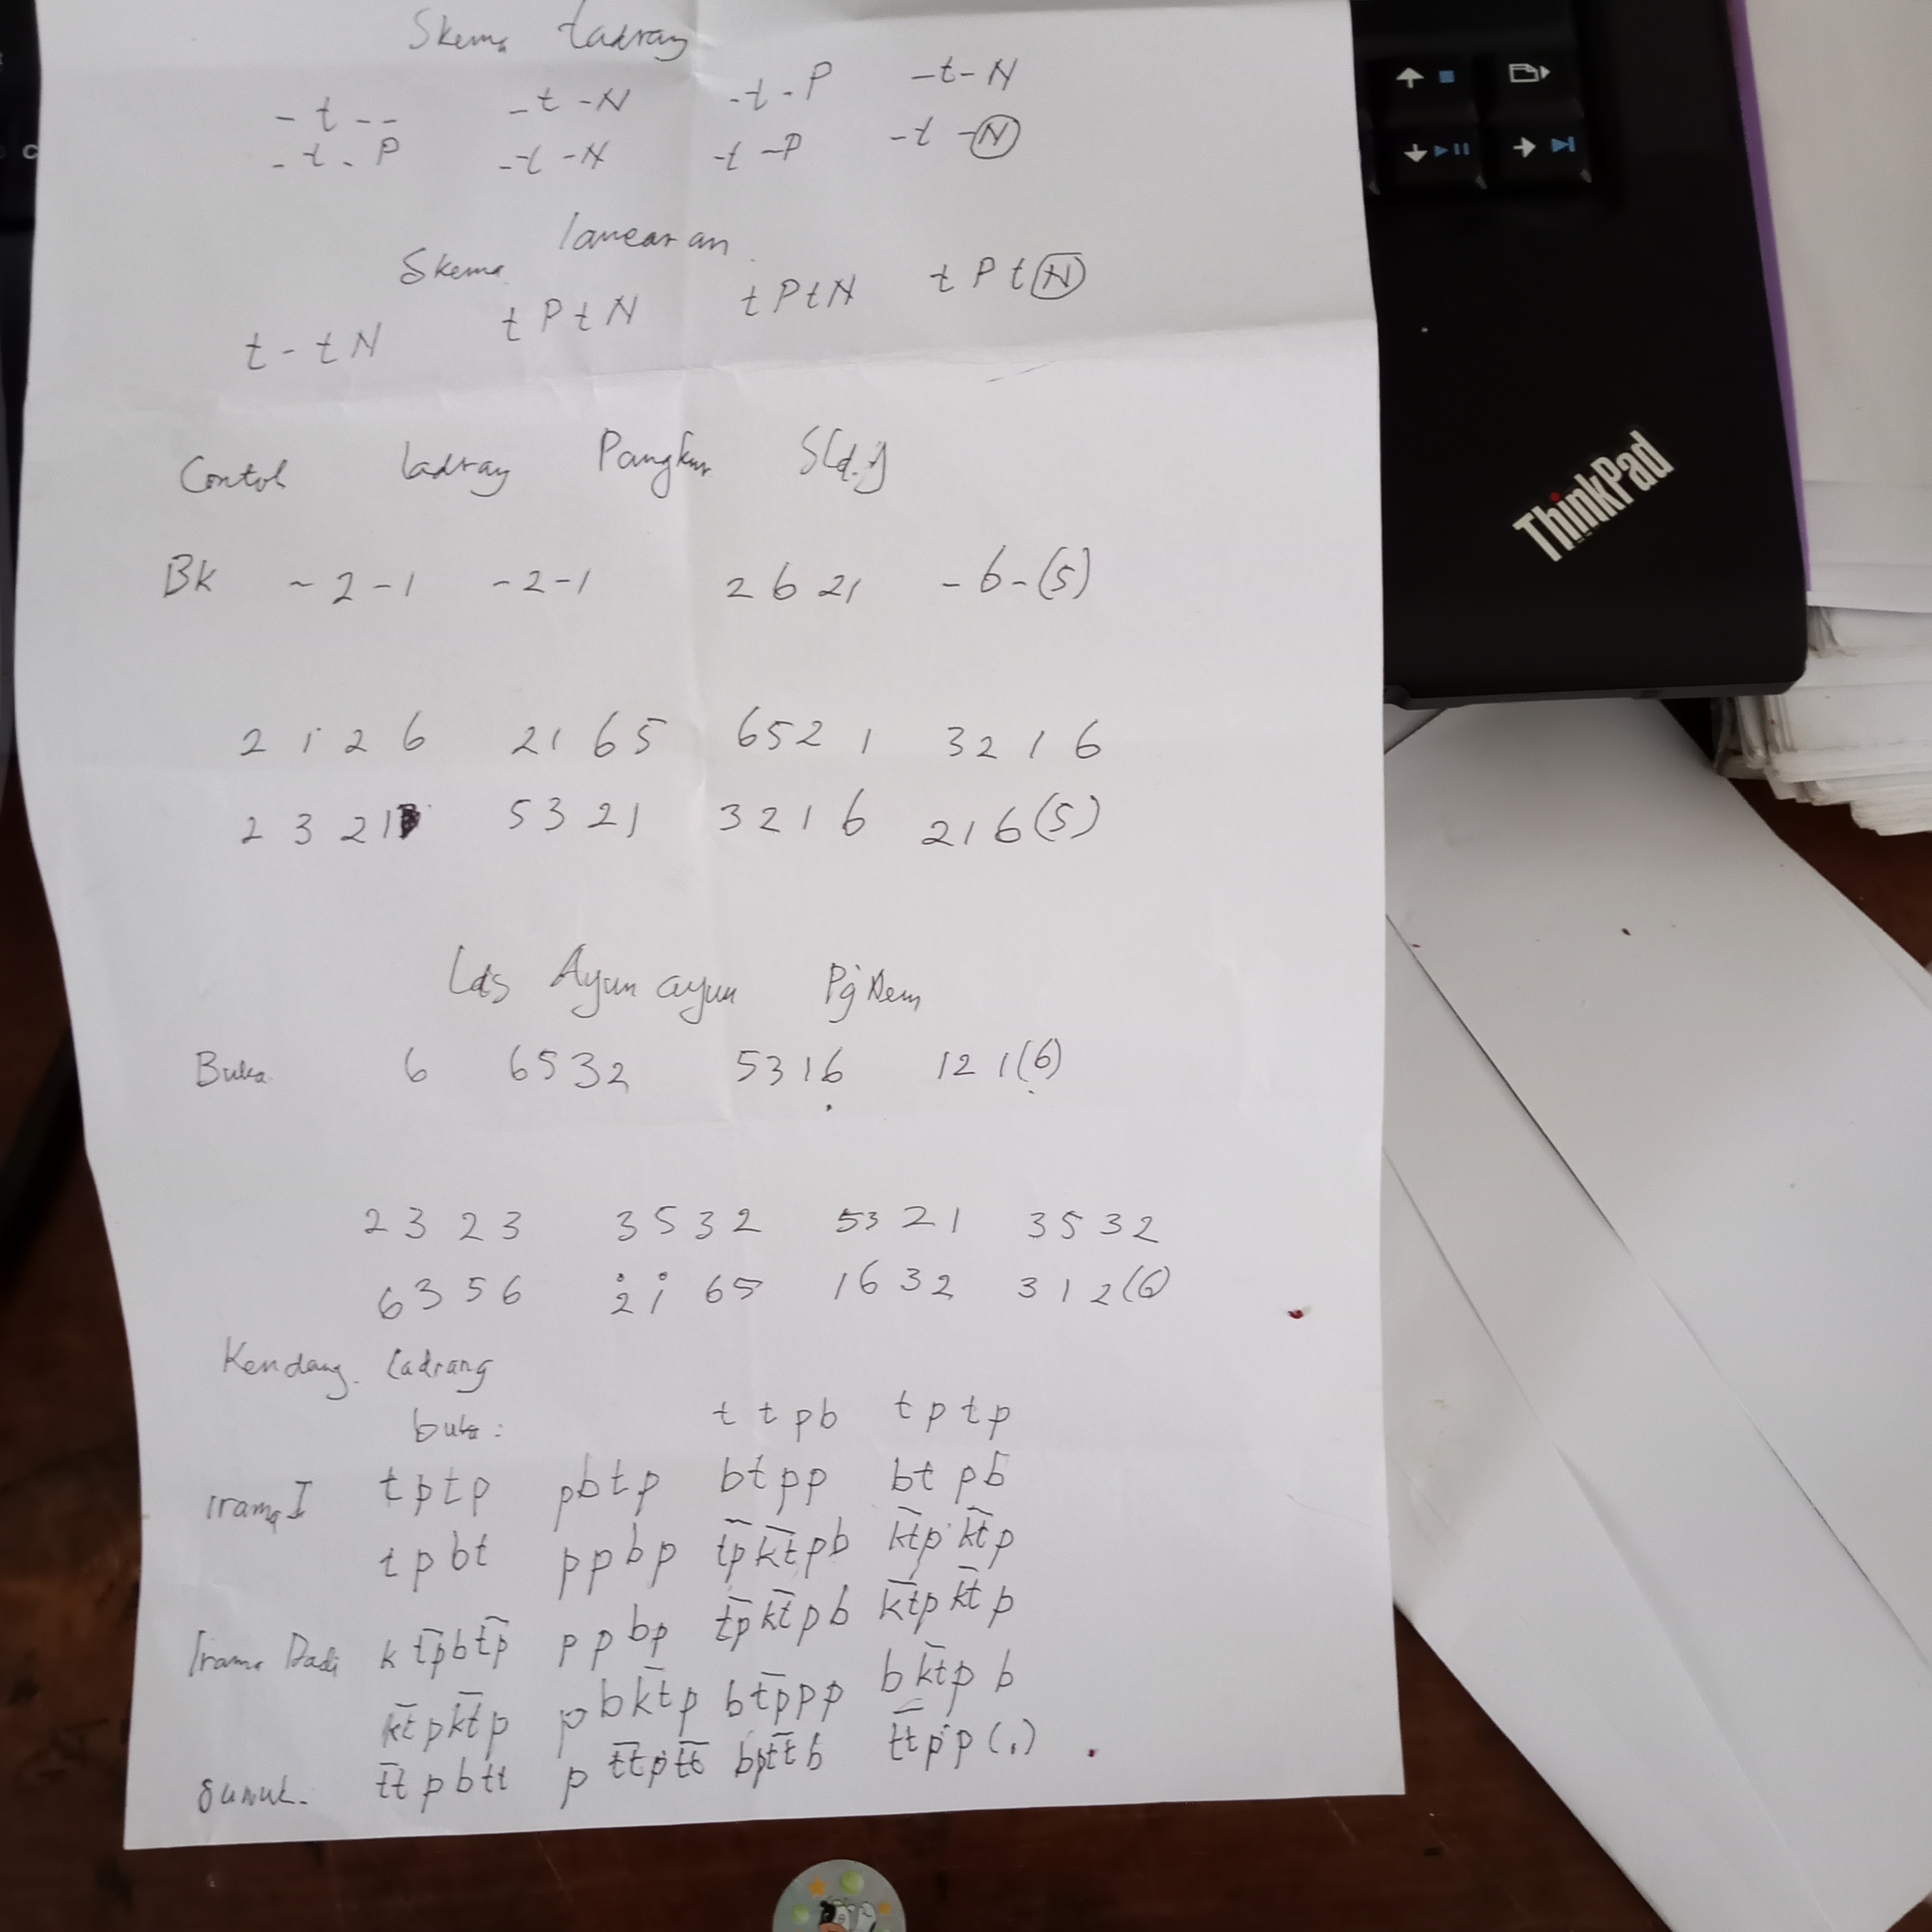 Skema Ladrang
- t - -   - t - N   - t - P   - t - N
- t - P   - t - N   - t - P   - t - (N)
Skema lancaran
t - t N   t P t N   t P t N   t P t (N)
Contoh ladrang Pangkur
Bk   - 2 - 1   - 2 - 1   2 6 2 1   - 6 - (5)
2 1 2 6   2 1 6 5   6 5 2 1   3 2 1 6
2 3 2 1   5 3 2 1   3 2 1 6   2 1 6 (5)
Ayun ayun
Buka   6   6 5 3 2   5 3 1 6̣   1 2 1 (6̣)
2 3 2 3   3 5 3 2   5 3 2 1   3 5 3 2
6 3 5 6   2̇ 1̇ 6 5   1 6 3 2   3 1 2 (6)
Kendang Ladrang
buka :   t t p b   t p t p
Irama I   t p t p   p b t p   b t p p   b t p b
t p b t   p p b p   t̅p̅ k̅t̅ p b   k̅t̅ p k̅t̅ p
Irama Dadi   k t̅p̅ b t̅p̅   p p b p   t̅p̅ k̅t̅ p b   k̅t̅ p k̅t̅ p
k̅t̅ p k̅t̅ p   p b k̅t̅ p   b t̅p̅ p p   b k̅t̅ p b
Suwuk.   t̅t̅ p b t t   p t̅t̅ p t̅t̅   b p t̅t̅ b   t̅t̅ p p (.)
ThinkPad